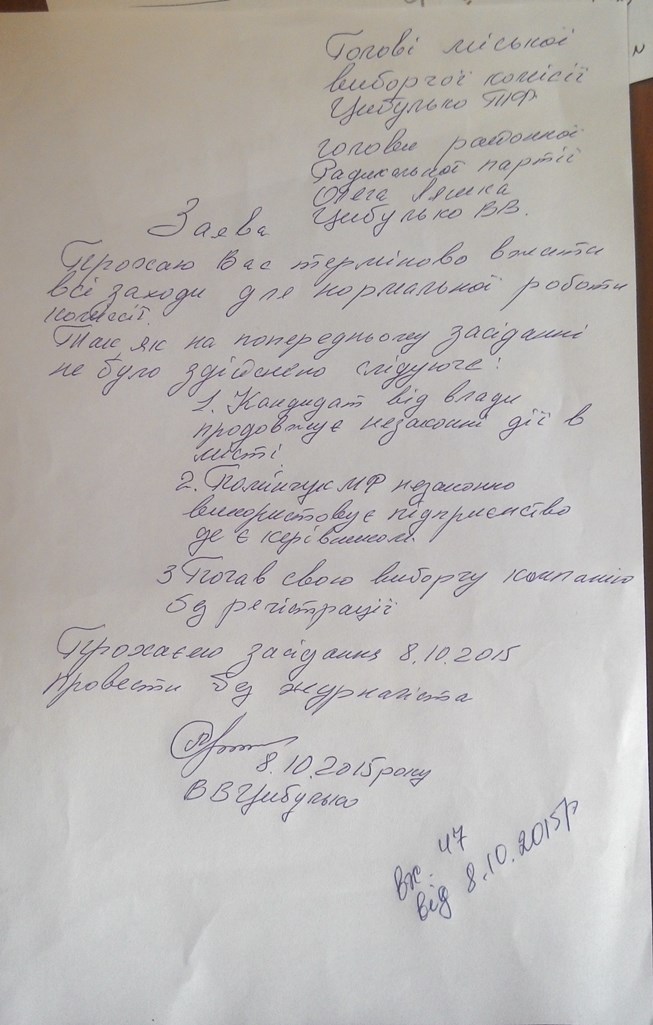 Голові міської
виборчої комісії
Цибулько ТФ
голови районної
Радикальної партії
Олега Ляшка
Цибулько ВВ.
Заява
Прохаю Вас терміново вжити
всі заходи для нормальної роботи
комісії.
Так як на попередньому засіданні
не було здійснено слідуюче:
1. Кандидат від влади
продовжує незаконні дії в
місті
2. Поліщук МФ незаконно
використовує підприємство
де є керівником.
3 Почав свою виборчу компанію
без регістрації
Прохаємо засідання 8.10.2015
провести без журналіста
8.10.2015 року
ВВ Цибулько
вх. 47
від 8.10.2015р